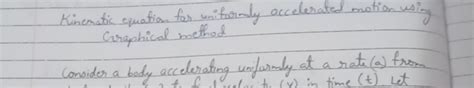 Kinematic equation for uniformly accelerated motion using
Graphical method
Consider a body accelerating uniformly at a rate (a) from
(v) in time (t). Let